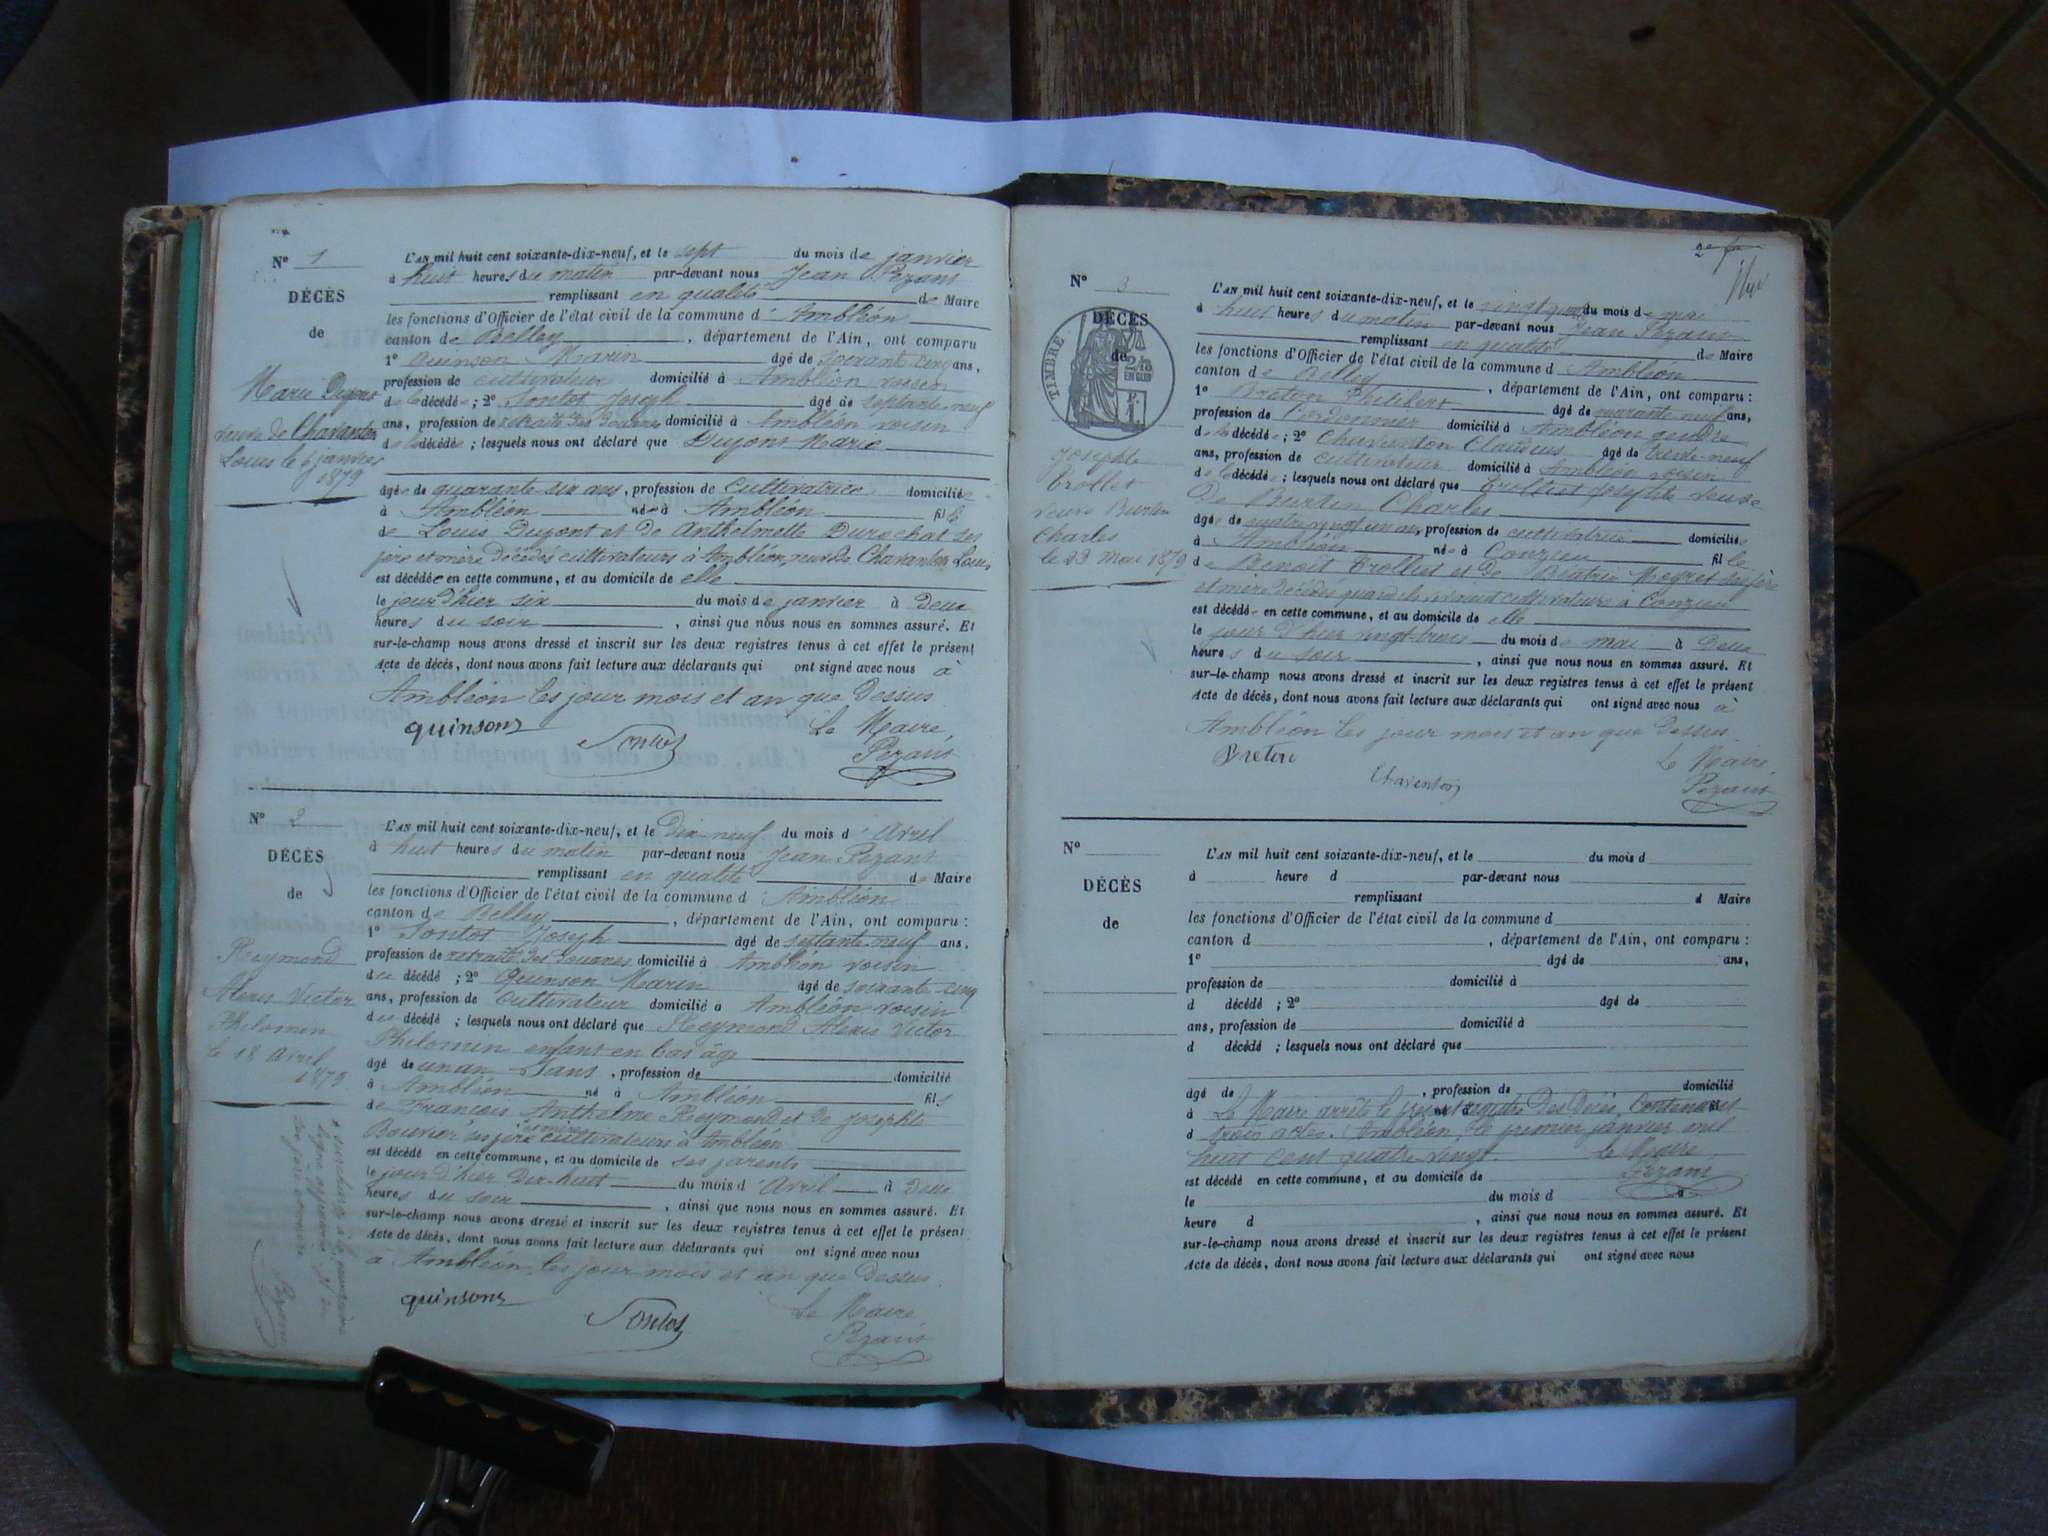 N° 1
DÉCÈS
de
Marie Dupont
veuve de Chavanton
Louis le 6 janvier
1879
L'AN mil huit cent soixante-dix-neuf, et le sept du mois de janvier
à huit heures du matin par-devant nous Jean Pezant
remplissant en qualité de Maire
les fonctions d'Officier de l'état civil de la commune d'Ambléon
canton de Belley, département de l'Ain, ont comparu
1° Quinson Marin âgé de soixante cinq ans,
profession de cultivateur domicilié à Ambléon voisin
de la décédée ; 2° Joseph âgé de septante-neuf
ans, profession de retraité des Douanes domicilié à Ambléon voisin
de la décédée ; lesquels nous ont déclaré que Dupont Marie
âgée de quarante-six ans, profession de Cultivatrice domiciliée
à Ambléon née à Ambléon fille
de Louis Dupont et de Anthelmette Durochat ses
père et mère décédés cultivateurs à Ambléon, veuve de Chavanton Louis,
est décédée en cette commune, et au domicile de elle
le jour d'hier six du mois de janvier à Deux
heures du soir, ainsi que nous nous en sommes assuré. Et
sur-le-champ nous avons dressé et inscrit sur les deux registres tenus à cet effet le présent
Acte de décès, dont nous avons fait lecture aux déclarants qui ont signé avec nous à
Ambléon les jour mois et an que Dessus
quinson Le Maire,
Pezant
N° 2
DÉCÈS
de
Reymond
Alexis Victor
Philomen
le 18 Avril
1879
L'AN mil huit cent soixante-dix-neuf, et le Dix-neuf du mois d'Avril
à huit heures du matin par-devant nous Jean Pezant
remplissant en qualité de Maire
les fonctions d'Officier de l'état civil de la commune d'Ambléon
canton de Belley, département de l'Ain, ont comparu :
1° Joseph âgé de septante-neuf ans,
profession de retraité des Douanes domicilié à Ambléon voisin
du décédé ; 2° Quinson Marin âgé de soixante-cinq
ans, profession de Cultivateur domicilié à Ambléon voisin
du décédé ; lesquels nous ont déclaré que Reymond Alexis Victor
Philomen enfant en bas âge
âgé de un an, profession de domicilié
à Ambléon né à Ambléon fils
de François Anthelme Reymond et de Josephte
Bouvier ses père et mère cultivateurs à Ambléon
est décédé en cette commune, et au domicile de ses parents
le jour d'hier Dix-huit du mois d'Avril à Deux
heures du soir, ainsi que nous nous en sommes assuré. Et
sur-le-champ nous avons dressé et inscrit sur les deux registres tenus à cet effet le présent
Acte de décès, dont nous avons fait lecture aux déclarants qui ont signé avec nous
à Ambléon, les jour mois et an que Dessus.
quinson Le Maire
Pezant
N° 3
DÉCÈS
de
TIMBRE
Josephte
Trolliet
veuve Burtin
Charles
le 23 Mai 1879
L'AN mil huit cent soixante-dix-neuf, et le vingt quatre du mois de mai
à huit heures du matin par-devant nous Jean Pezant
remplissant en qualité de Maire
les fonctions d'Officier de l'état civil de la commune d'Ambléon
canton de Belley, département de l'Ain, ont comparu :
1° Breton Philibert âgé de quarante neuf ans,
profession de Cordonnier domicilié à Ambléon gendre
de la décédée ; 2° Chavanton Claudius âgé de trente-neuf
ans, profession de cultivateur domicilié à Ambléon voisin
de la décédée ; lesquels nous ont déclaré que Trolliet Josephte veuve
De Burtin Charles
âgée de quatre vingt un an, profession de cultivatrice domiciliée
à Ambléon née à Conzieu fille
de Benoit Trolliet et de Béatrix Meyret ses père
et mère décédés quand ils vivaient cultivateurs à Conzieu
est décédée en cette commune, et au domicile de elle
le jour d'hier vingt-trois du mois de mai à Deux
heures du soir, ainsi que nous nous en sommes assuré. Et
sur-le-champ nous avons dressé et inscrit sur les deux registres tenus à cet effet le présent
Acte de décès, dont nous avons fait lecture aux déclarants qui ont signé avec nous à
Ambléon les jour mois et an que Dessus.
Breton Chavanton Le Maire,
Pezant
N°
DÉCÈS
de
L'AN mil huit cent soixante-dix-neuf, et le du mois d
à heure d par-devant nous
remplissant d Maire
les fonctions d'Officier de l'état civil de la commune d
canton d, département de l'Ain, ont comparu :
1° âgé de ans,
profession de domicilié à
d décédé ; 2° âgé de
ans, profession de domicilié à
d décédé ; lesquels nous ont déclaré que
âgé de, profession de domicilié
à Le Maire arrête le présent registre Des Décès, Contenant
d trois actes. Ambléon, le premier janvier mil
huit cent quatre-vingt. Le Maire,
est décédé en cette commune, et au domicile de Pezant
le du mois d à
heure d, ainsi que nous nous en sommes assuré. Et
sur-le-champ nous avons dressé et inscrit sur les deux registres tenus à cet effet le présent
Acte de décès, dont nous avons fait lecture aux déclarants qui ont signé avec nous